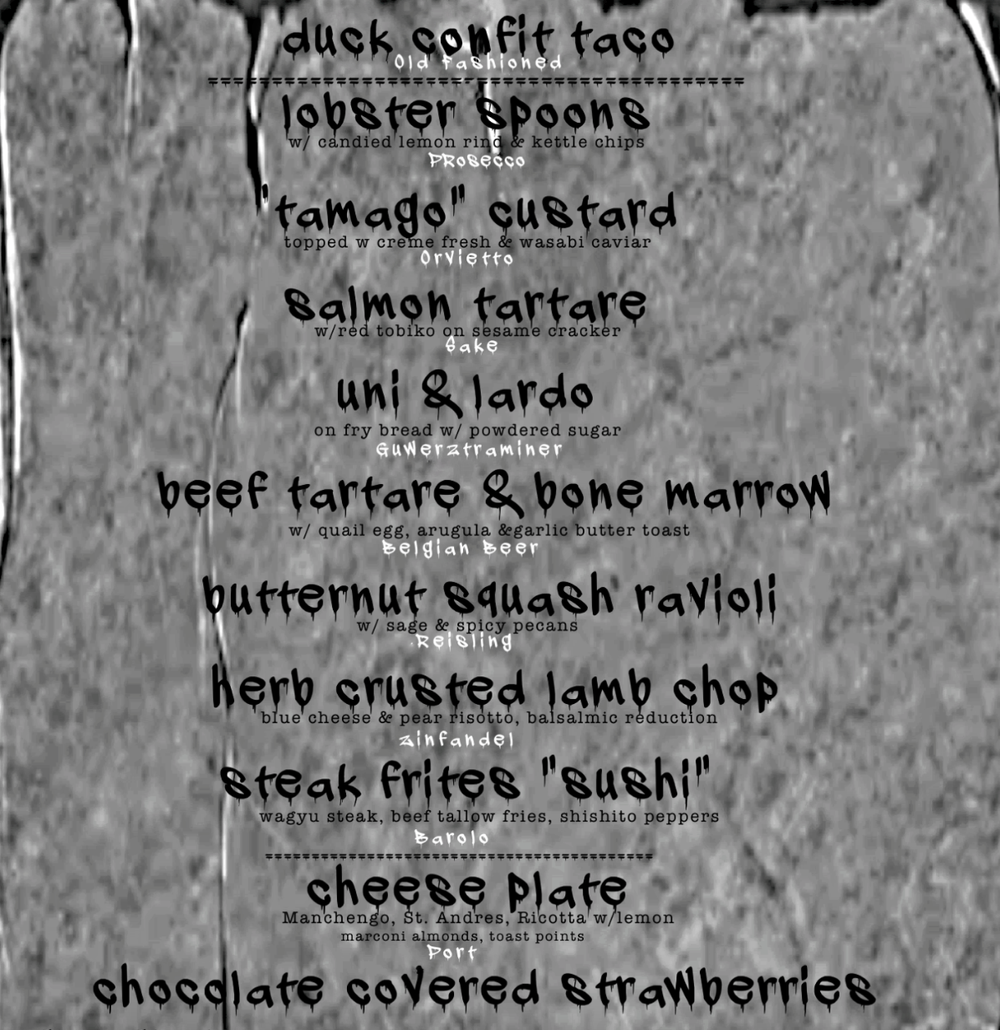 duck confit taco
Old Fashioned
lobster spoons
w/ candied lemon rind & kettle chips
Prosecco
"tamago" custard
topped w creme fresh & wasabi caviar
Orvietto
salmon tartare
w/red tobiko on sesame cracker
Sake
uni & lardo
on fry bread w/ powdered sugar
Guwerztraminer
beef tartare & bone marrow
w/ quail egg, arugula &garlic butter toast
Belgian Beer
butternut squash ravioli
w/ sage & spicy pecans
Reisling
herb crusted lamb chop
blue cheese & pear risotto, balsalmic reduction
Zinfandel
steak frites "sushi"
wagyu steak, beef tallow fries, shishito peppers
Barolo
cheese plate
Manchengo, St. Andres, Ricotta w/lemon
marconi almonds, toast points
Port
chocolate covered strawberries